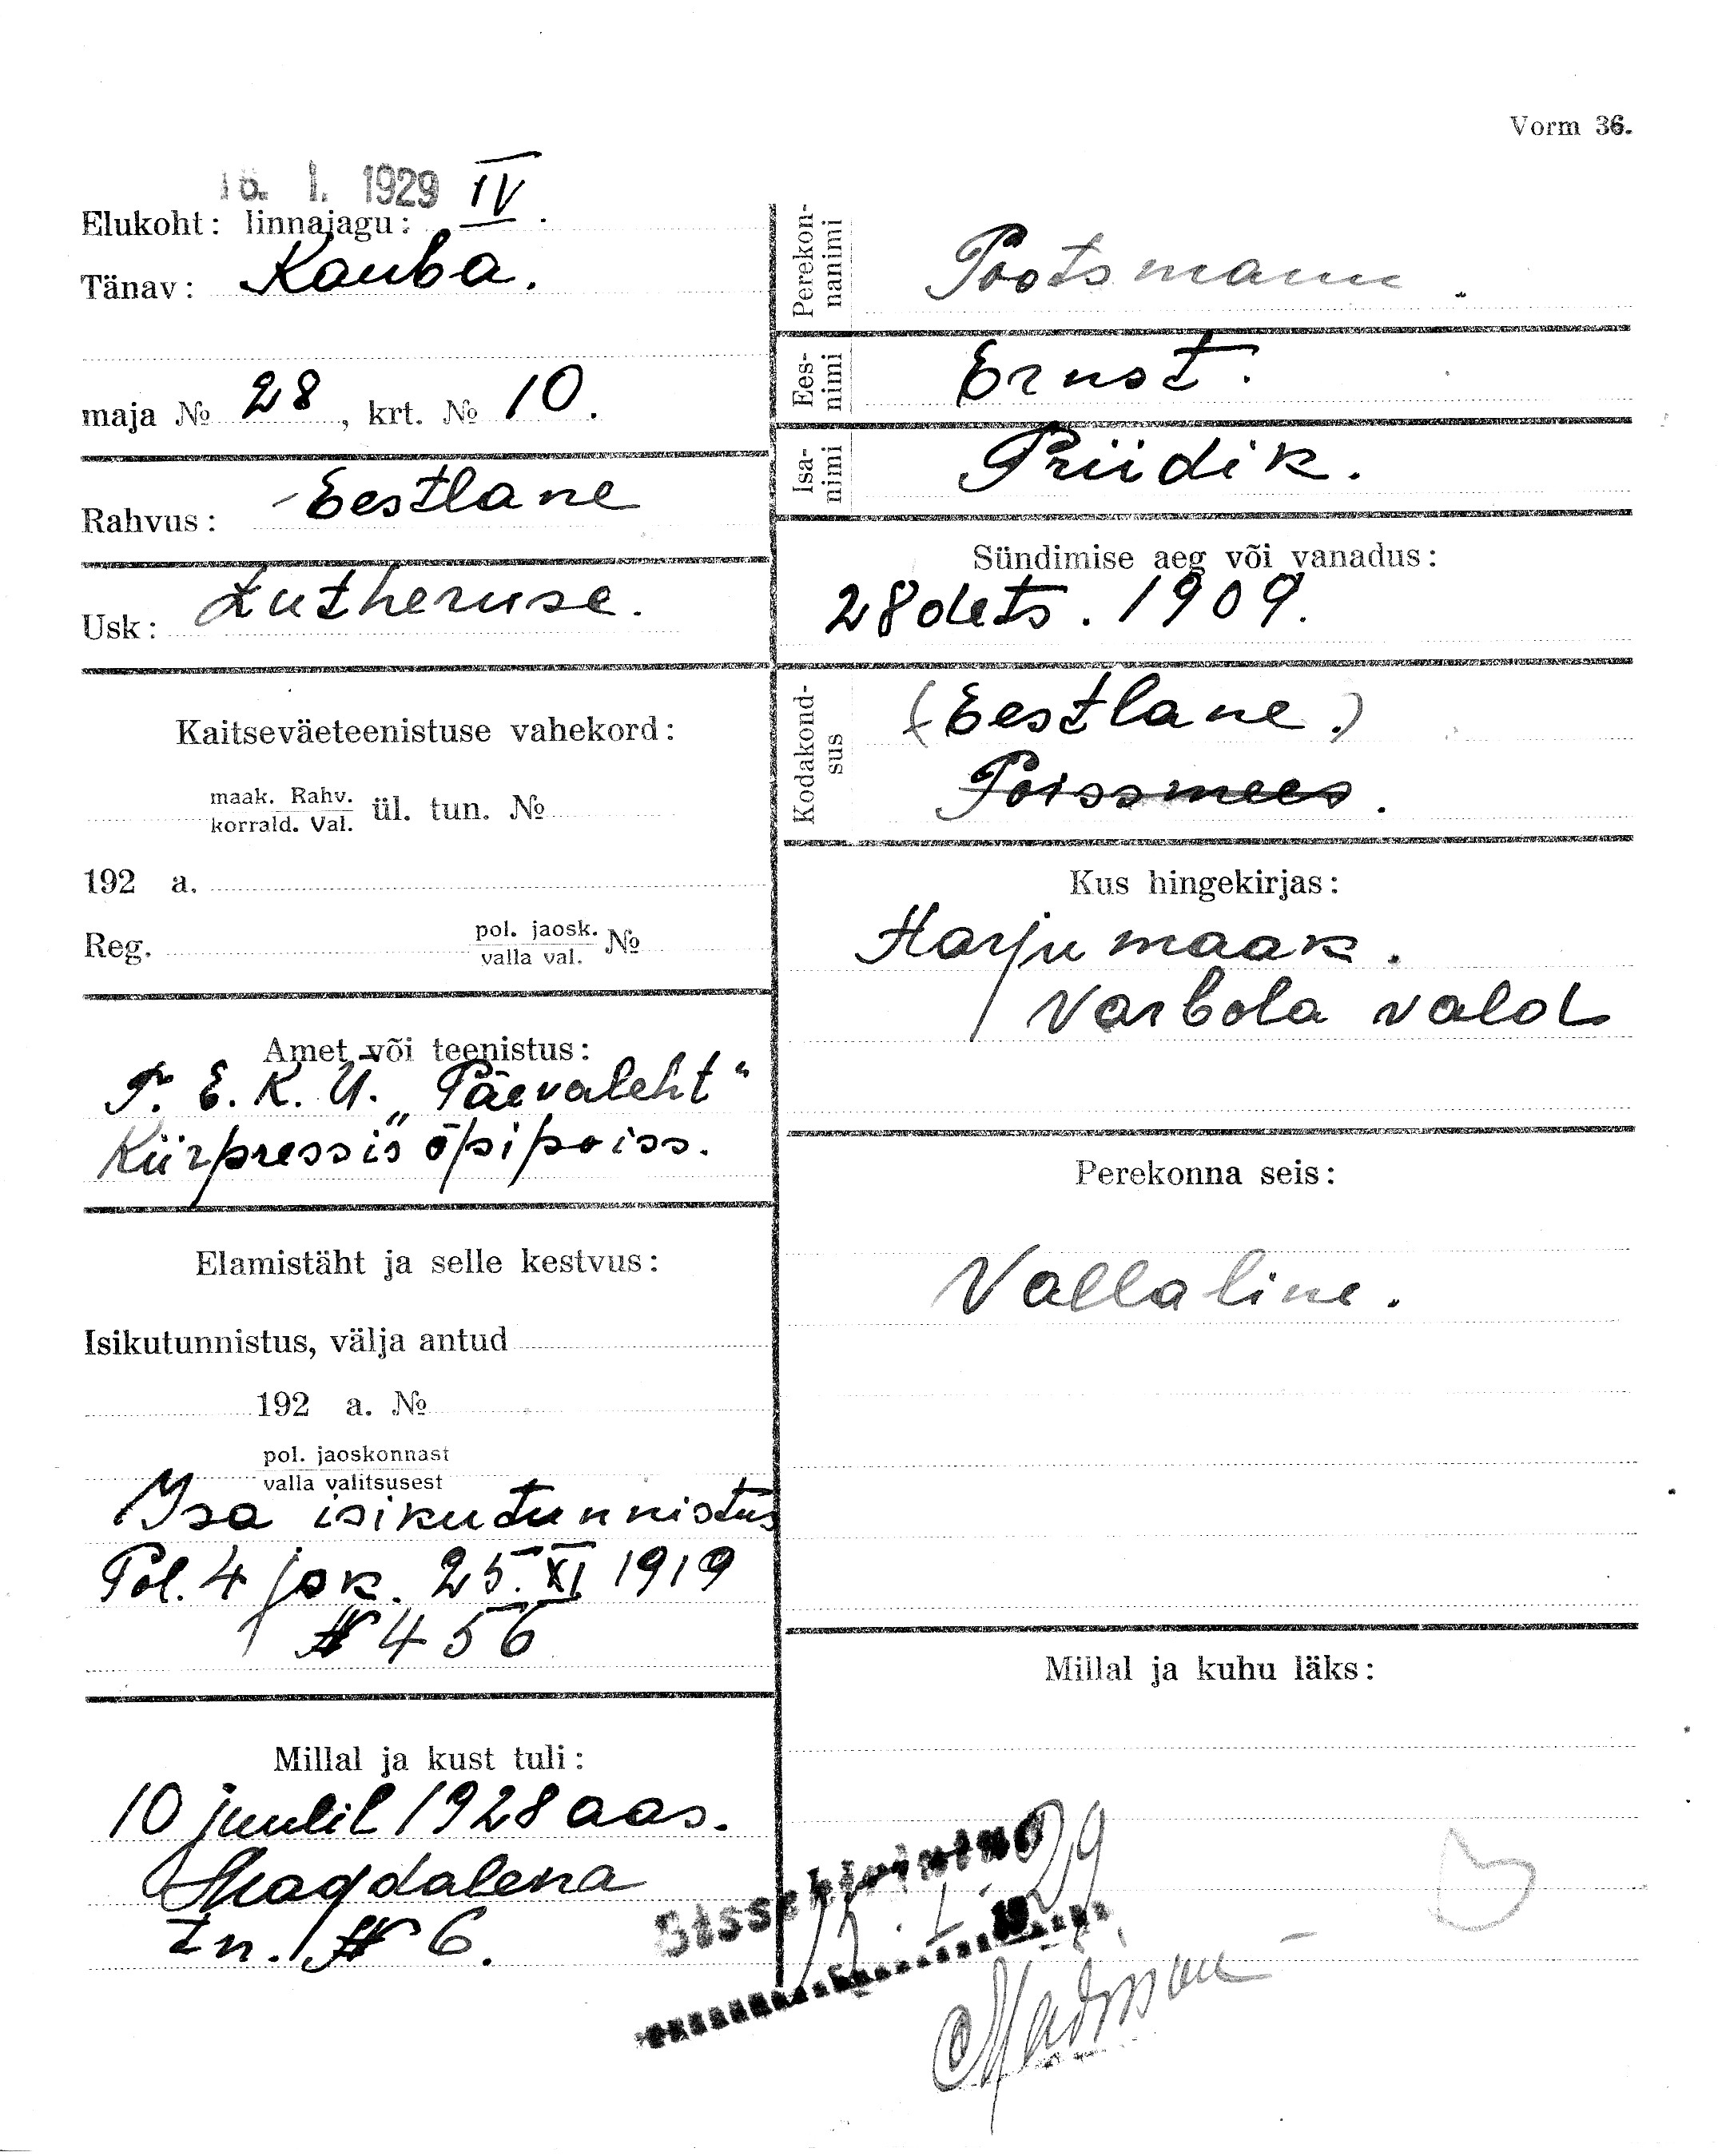 Vorm 36.
16. I. 1929 IV.
Elukoht: linnajagu:
Tänav: Kauba.
maja № 28, krt. № 10.
Rahvus: Eestlane
Usk: Lutheruse.
Kaitseväeteenistuse vahekord:
maak. Rahv.
korrald. Val. ül. tun. №
192 a.
Reg. pol. jaosk. №
valla val.
Amet või teenistus:
T. E. K. Ü. „Päevaleht"
Kiirpressis õpipoiss.
Elamistäht ja selle kestvus:
Isikutunnistus, välja antud
192 a. №
pol. jaoskonnast
valla valitsusest
Isa isikutunnistus
Pol. 4 jsk. 25. XI 1919
№ 456
Millal ja kust tuli:
10 juulil 1928 aas.
Magdalena
tn. № 6.
Perekonnanimi
Pootsmann.
Eesnimi
Ernst.
Isanimi
Priidik.
Sündimise aeg või vanadus:
28 dets. 1909.
Kodakondsus
(Eestlane.)
Poissmees.
Kus hingekirjas:
Harju maak.
Varbola vald
Perekonna seis:
Vallaline.
Millal ja kuhu läks:
Sissekirjutud